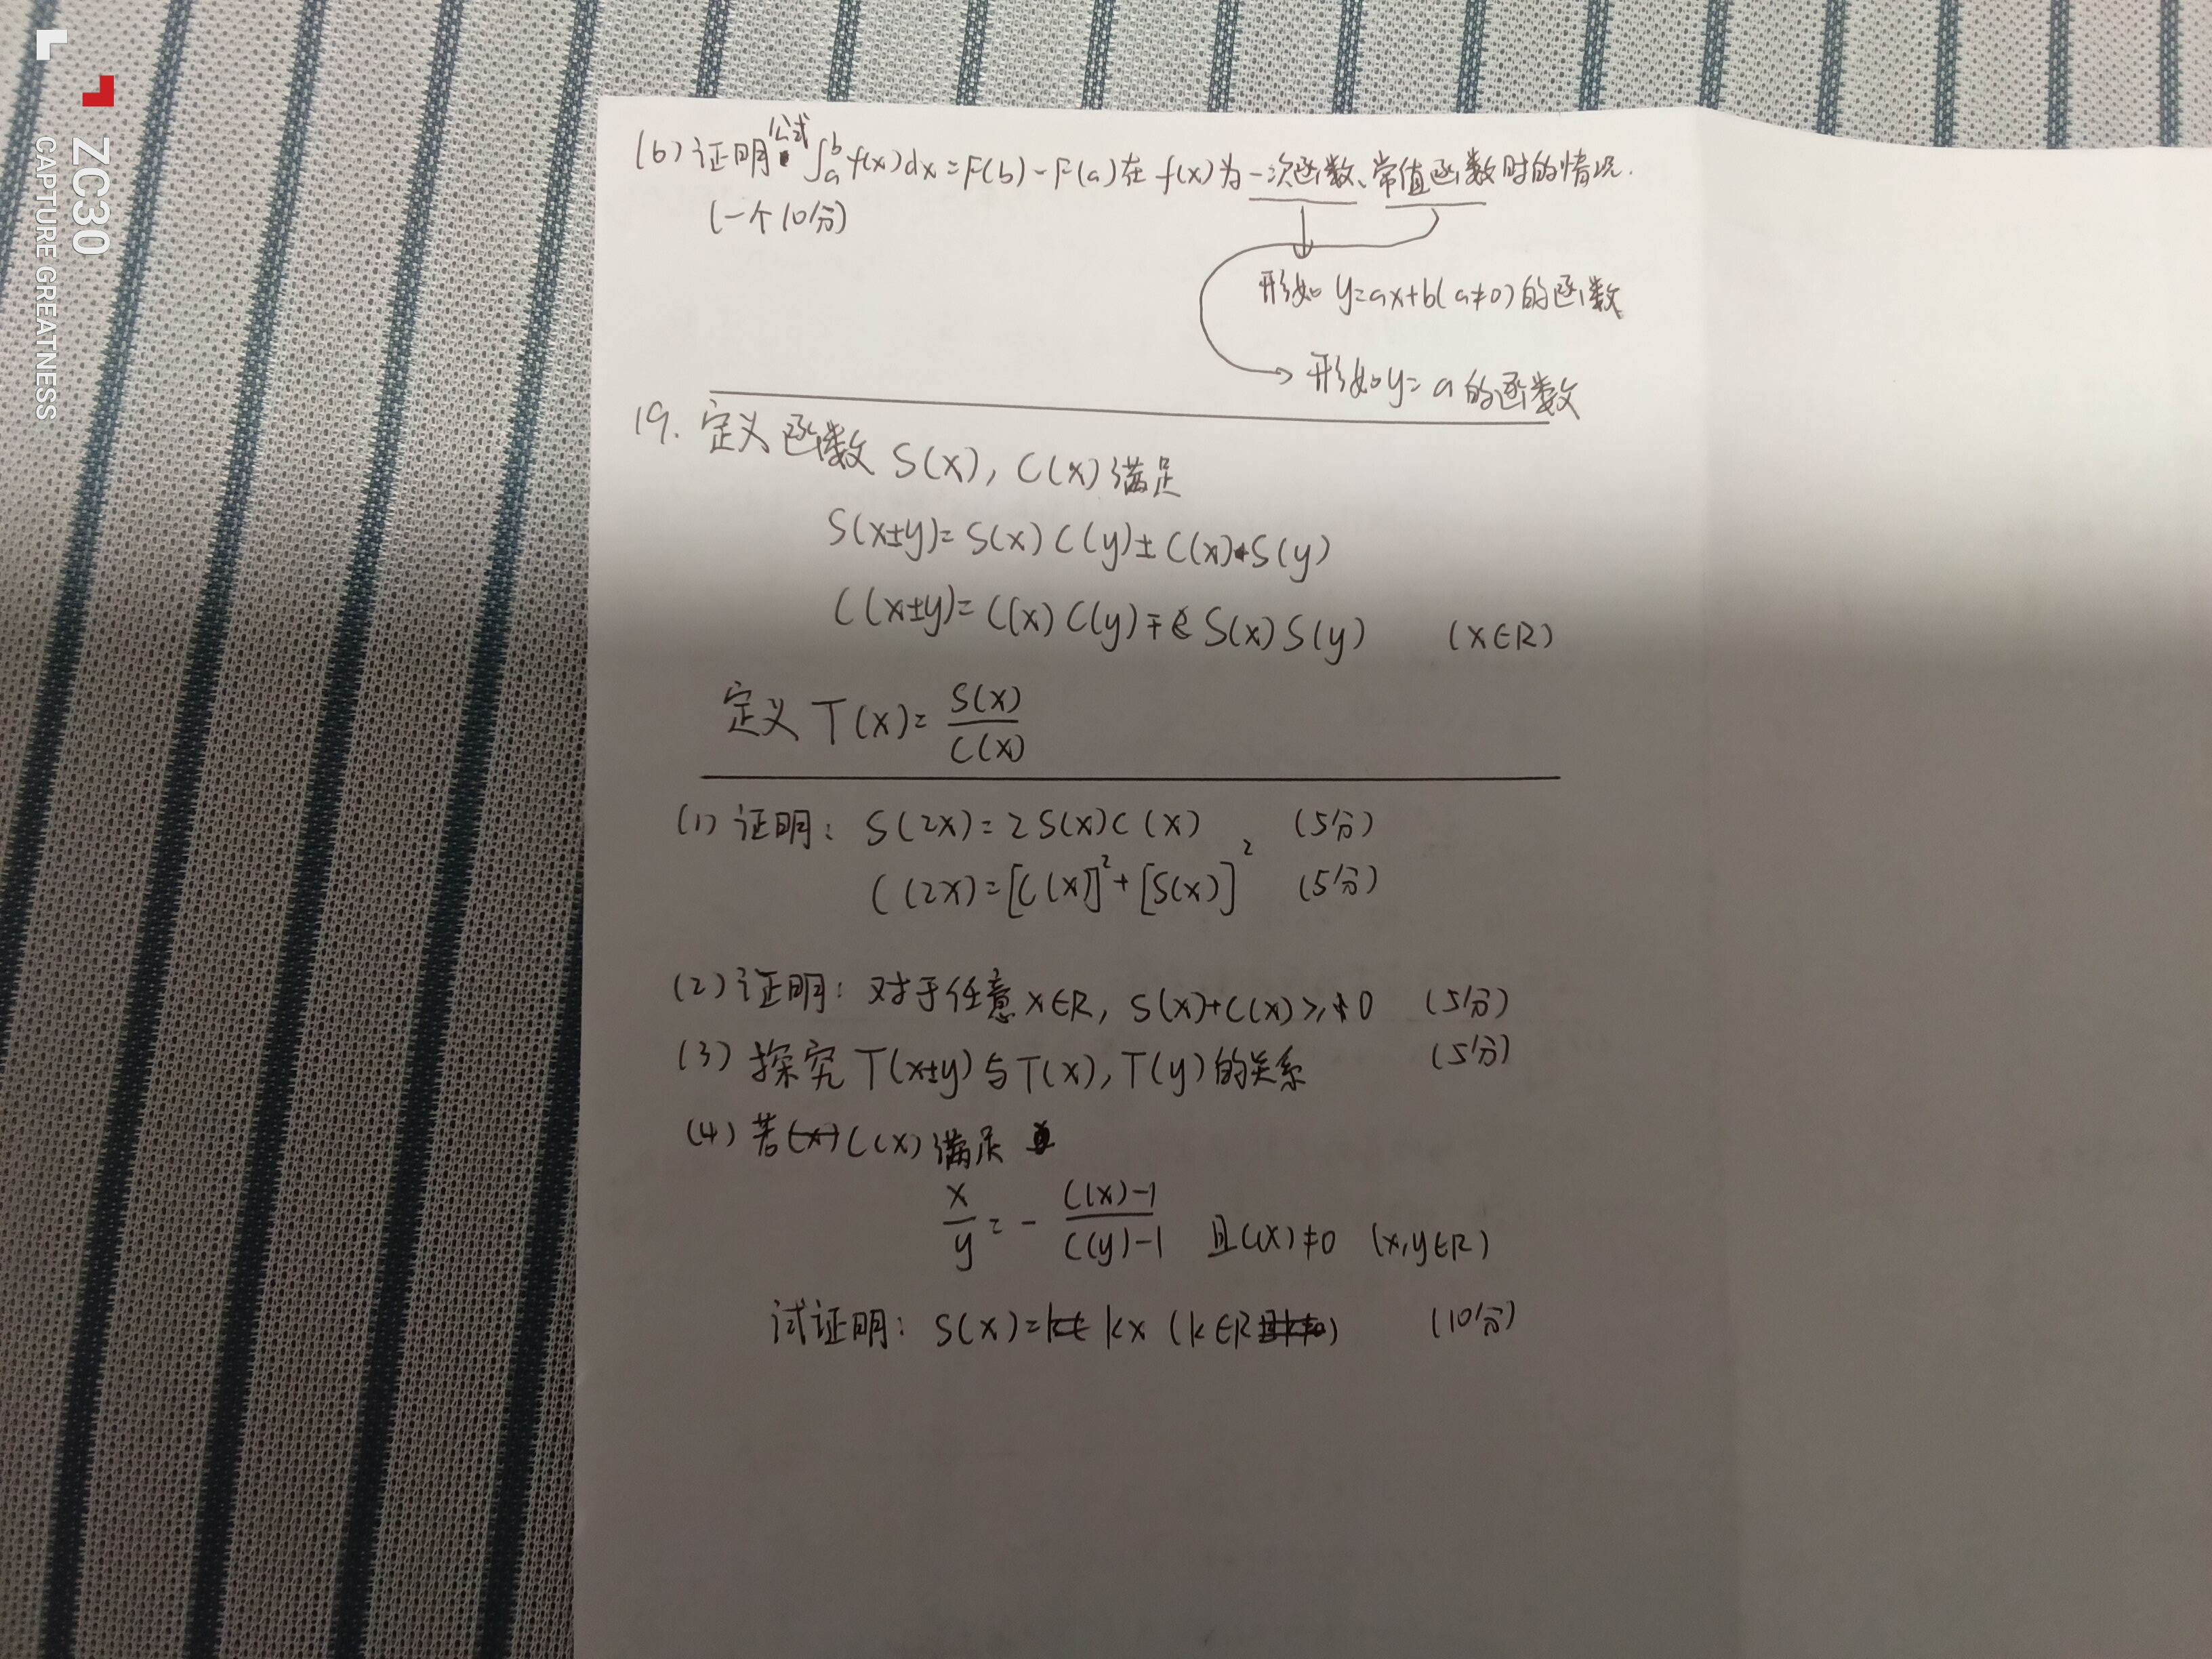 ZC30
CAPTURE GREATNESS
(6) 证明公式 ∫_a^b f(x)dx=F(b)-F(a)在 f(x)为一次函数、常值函数时的情况.
(一个10分)
形如 y=ax+b(a≠0)的函数
形如y=a的函数
19. 定义函数 S(x), C(x)满足
S(x±y)=S(x)C(y)±C(x)·S(y)
C(x±y)=C(x)C(y)∓S(x)S(y) (x∈R)
定义 T(x)=S(x)/C(x)
(1) 证明: S(2x)=2S(x)C(x) (5分)
C(2x)=[C(x)]²+[S(x)]² (5分)
(2) 证明: 对于任意x∈R, S(x)+C(x)≥0 (5分)
(3) 探究 T(x±y)与T(x), T(y)的关系 (5分)
(4) 若C(x)满足
x/y=-(C(x)-1)/(C(y)-1) 且C(x)≠0 (x,y∈R)
试证明: S(x)=kx (k∈R) (10分)